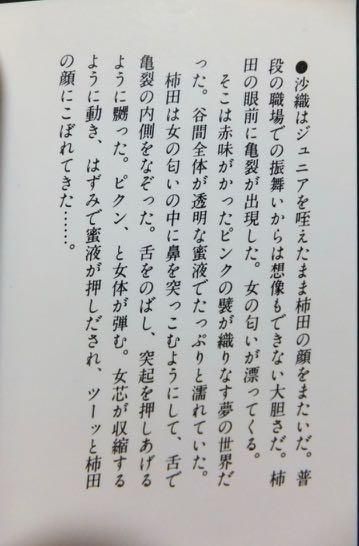 ●沙織はジュニアを咥えたまま柿田の顔をまたいだ。普
段の職場での振舞いからは想像もできない大胆さだ。柿
田の眼前に亀裂が出現した。女の匂いが漂ってくる。
そこは赤味がかったピンクの襞が織りなす夢の世界だ
った。谷間全体が透明な蜜液でたっぷりと濡れていた。
柿田は女の匂いの中に鼻を突っこむようにして、舌で
亀裂の内側をなぞった。舌をのばし、突起を押しあげる
ように嬲った。ピクン、と女体が弾む。女芯が収縮する
ように動き、はずみで蜜液が押しだされ、ツーッと柿田
の顔にこぼれてきた……。